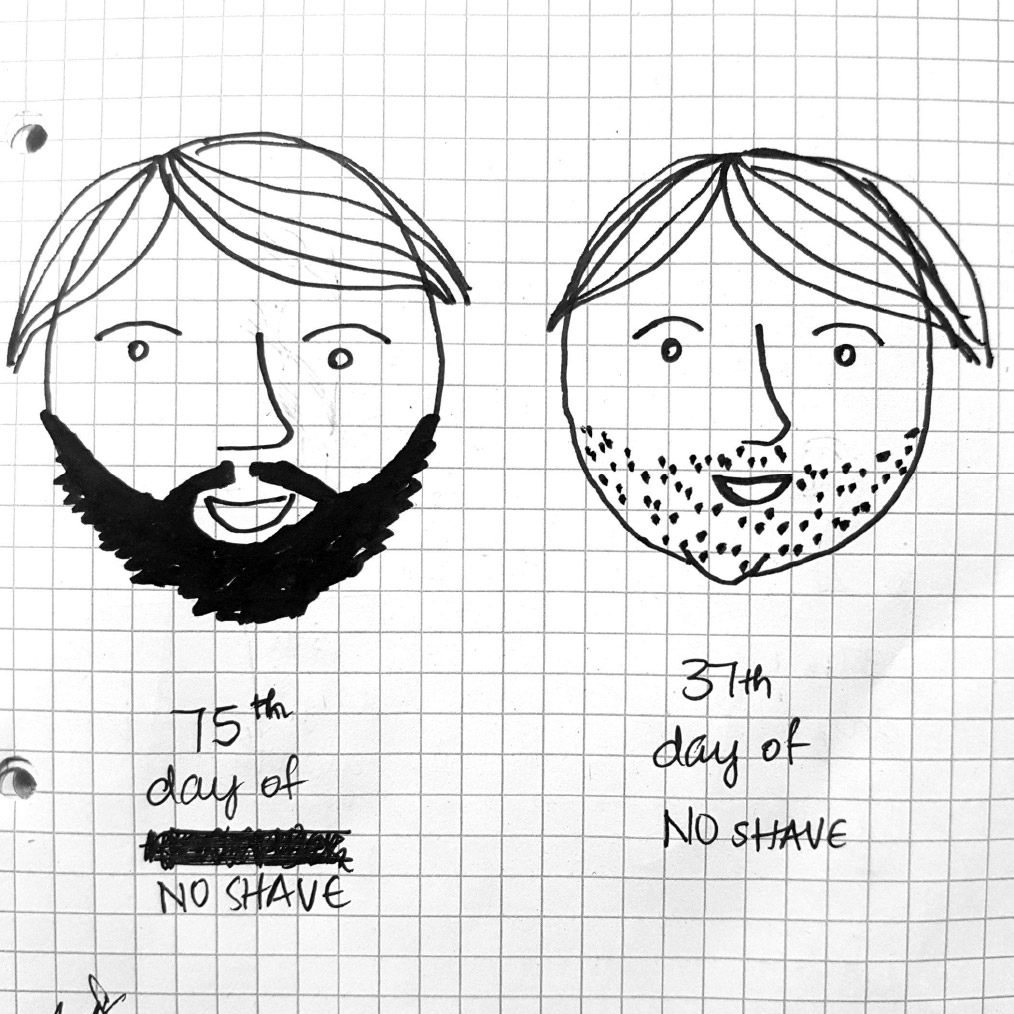 75th
day of
NO SHAVE
37th
day of
NO SHAVE